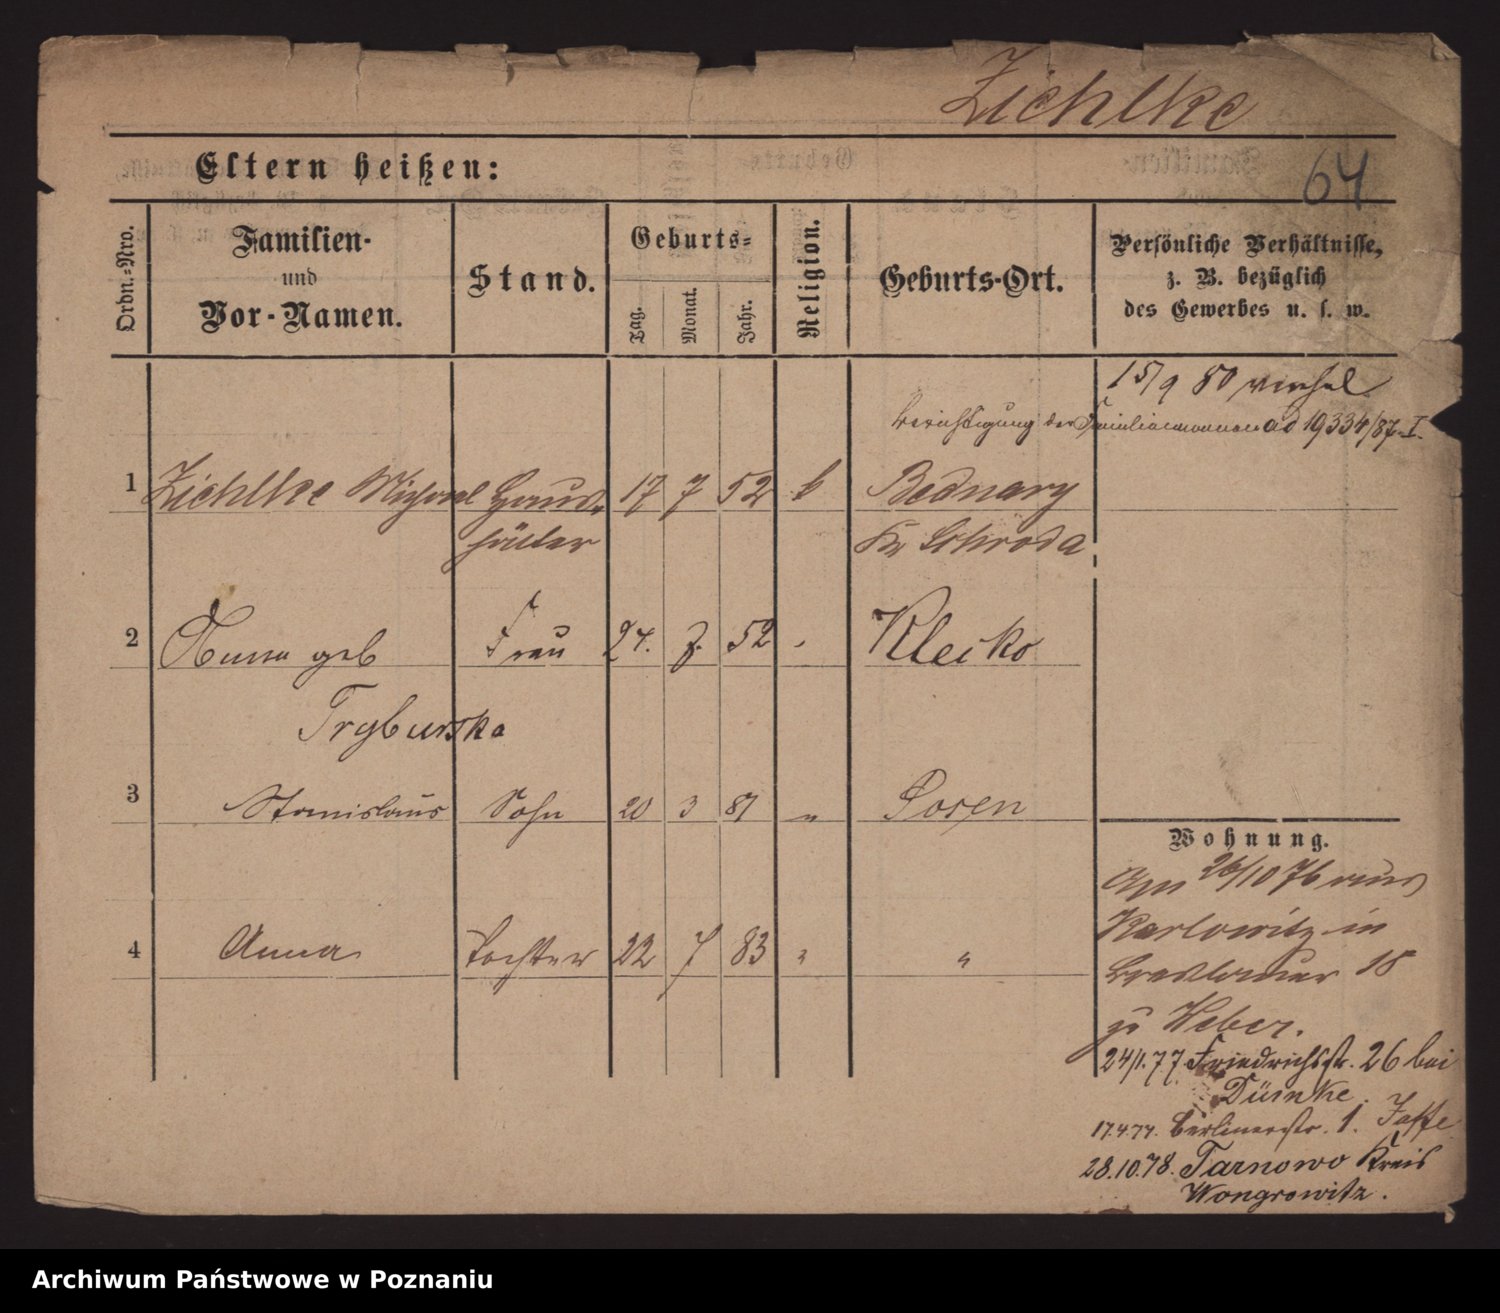 Zichlke
64
Eltern heißen:
Ordn.-Nro.
Familien-
und
Vor-Namen.
Stand.
Geburts-
Tag.
Monat.
Jahr.
Religion.
Geburts-Ort.
Persönliche Verhältnisse,
z. B. bezüglich
des Gewerbes u. s. w.
15/9 80
Berichtigung des Familiennamen ad 19334/87. I.
1 Zichlke Michael Haus- 17 7 52 k Bednary
hälter Kr Schroda
2 geb Frau 24. 7. 52 Klecko
Tryburska
3 Stanislaus Sohn 20 3 81 " Posen
4 Anna Tochter 22 7 83 " "
Wohnung.
26/10 76 aus
Karlowitz in
Breslauer 18
zu Weber.
24/1.77 Friedrichsstr. 26 bei
Dümke.
17.4.77. Berlinerstr. 1. Jaffe
28.10.78. Tarnowo Kreis
Wongrowitz.
Archiwum Państwowe w Poznaniu